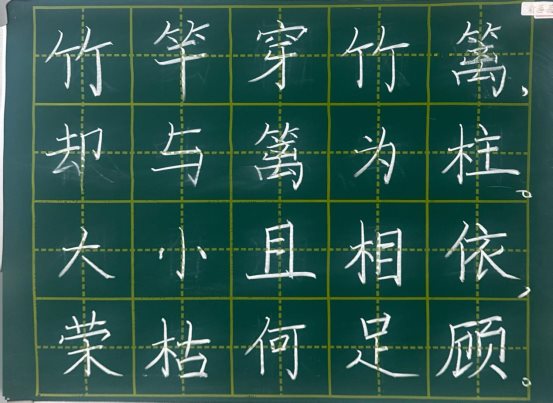 竹竿穿竹篱，
却与篱为柱。
大小且相依，
荣枯何足顾。